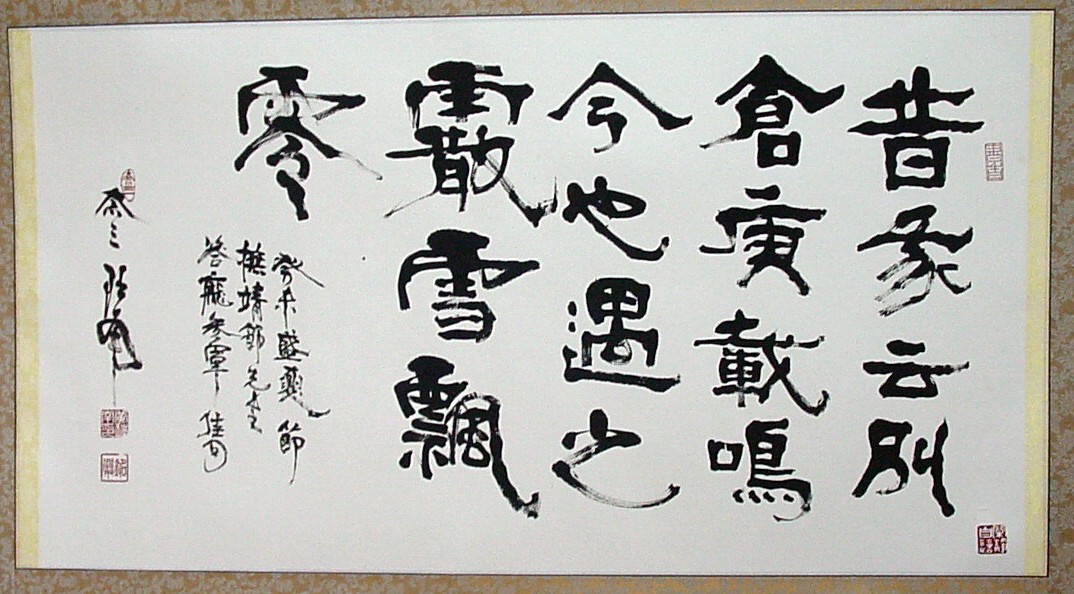 昔我云別
倉庚載鳴
今也遇之
霰雪飄
零
癸未盛夏節
靖節先生
答龐參軍佳句